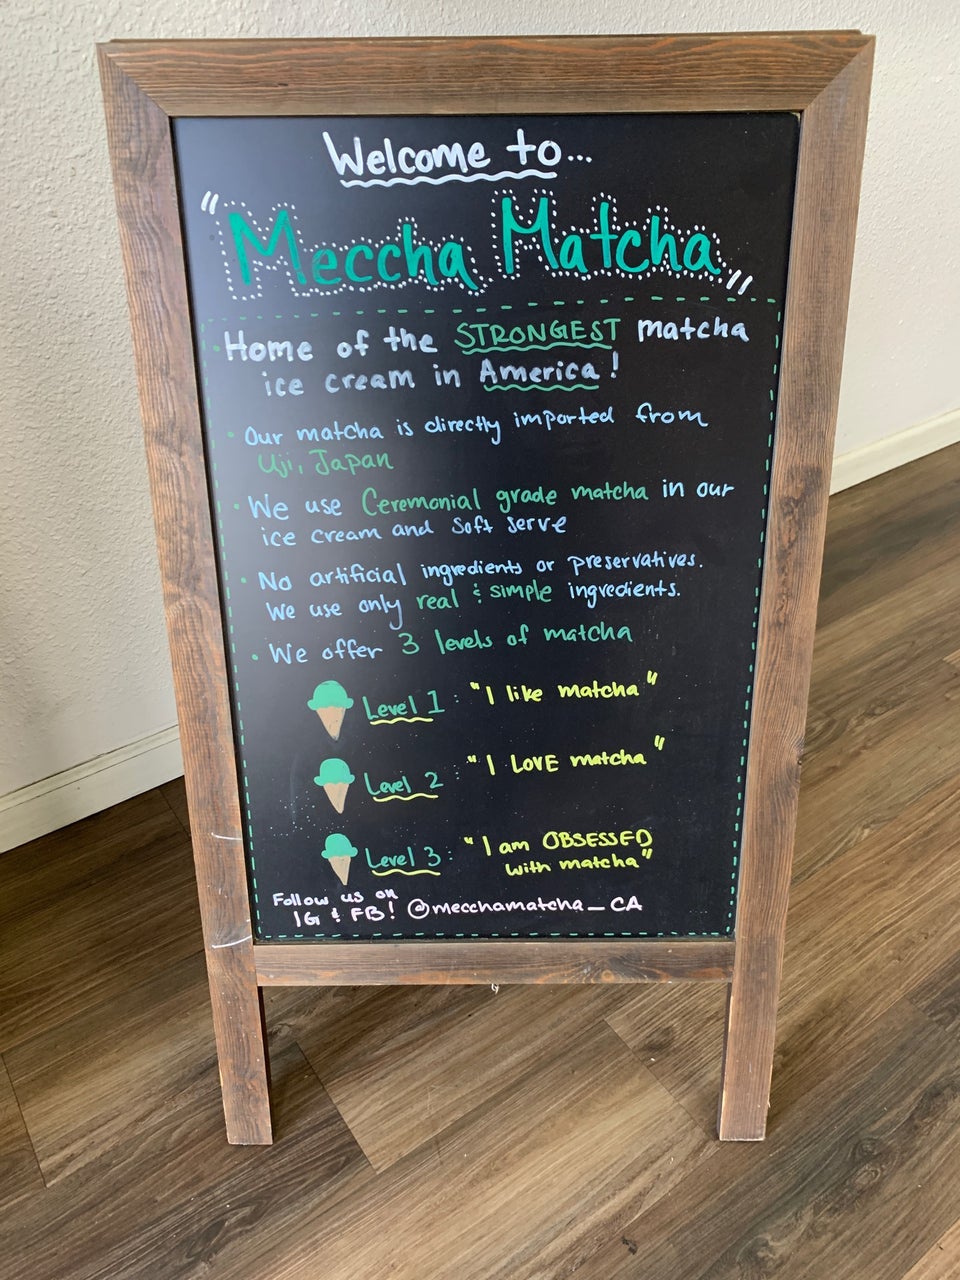 Welcome to...
"Meccha Matcha"
· Home of the STRONGEST matcha
ice cream in America!
· Our matcha is directly imported from
Uji, Japan
· We use Ceremonial grade matcha in our
ice cream and soft serve
· No artificial ingredients or preservatives.
We use only real & simple ingredients.
· We offer 3 levels of matcha
Level 1: "I like matcha"
Level 2: "I LOVE matcha"
Level 3: "I am OBSESSED
with matcha"
Follow us on
IG & FB! @mecchamatcha_CA